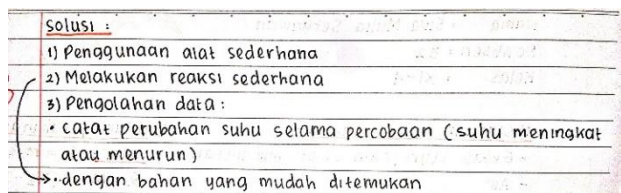 Solusi :
1) Penggunaan alat sederhana
2) Melakukan reaksi sederhana
3) Pengolahan data :
• catat perubahan suhu selama percobaan (suhu meningkat
atau menurun)
• dengan bahan yang mudah ditemukan